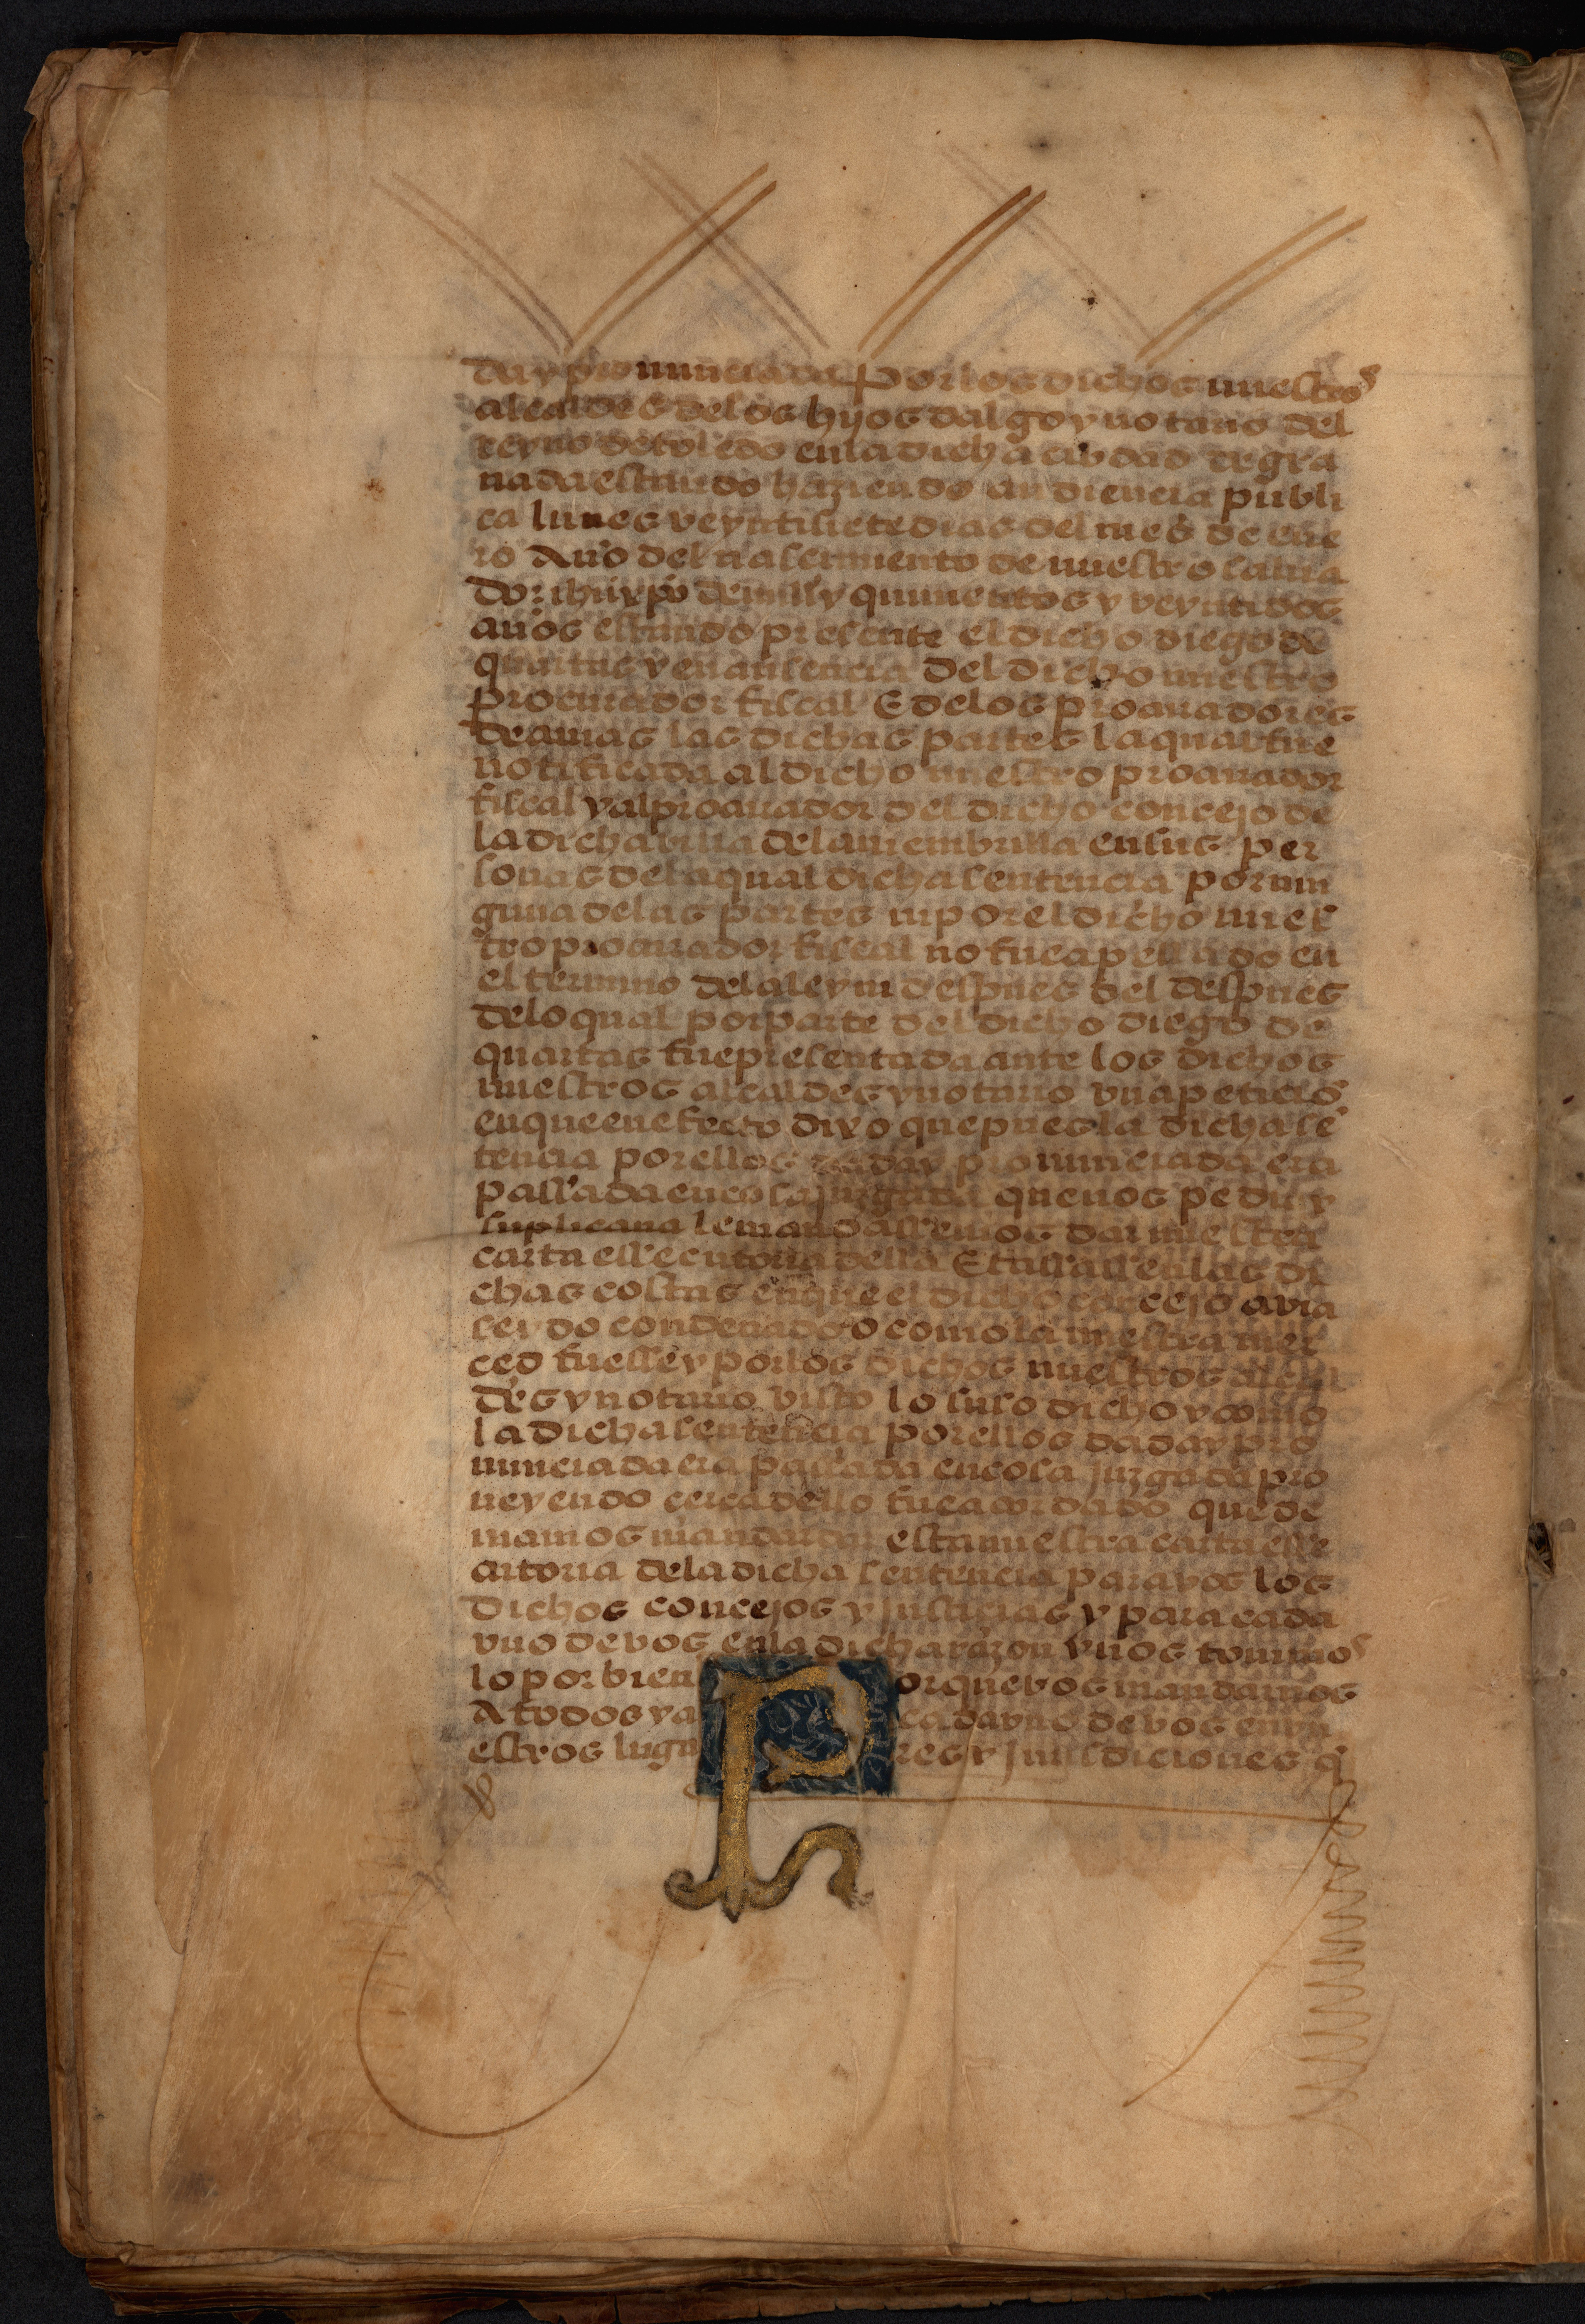 day pronunciada Por los dichos nuestros
alcaldes delos hijos dalgo y notario del
reyno detoledo enla dicha cibdad de gra
nada estando haziendo audiencia publi
ca lunes veyntisiete dias del mes de ene
ro Año del nascimiento de nuestro salua
dor ihũ xpõ de mill y quinientos y veyntidos
años estando presente el dicho diego de
quartas y en ausencia del dicho nuestro
procurador fiscal E delos procuradores
de amas las dichas partes la qual fue
notificada al dicho nuestro procurador
fiscal y al procurador del dicho concejo de
la dicha villa dela membrilla en sus per
sonas dela qual dicha sentencia por nin
guna delas partes ni por el dicho nues
tro procurador fiscal no fue apellado en
el termino dela ley ni despues del despues
delo qual por parte del dicho diego de
quartas fue presentada ante los dichos
nuestros alcaldes y notario vna peticiõ
en que en efecto dixo que pues la dicha sẽ
tencia por ellos dada y pronunciada era
passada en cosa juzgada que nos pedia y
suplicaua le mandassemos dar nuestra
carta essecutoria della E tassasse las di
chas costas en que el dicho concejo avia
seydo condenado o como la nuestra mer
ced fuesse y por los dichos nuestros alcal
des y notario visto lo suso dicho y como
la dicha sentencia por ellos dada y pro
nunciada era passada en cosa juzgada pro
ueyendo cerca dello fue acordado que de
uiamos mandar dar esta nuestra carta esse
cutoria dela dicha sentencia para vos los
dichos concejos y justicias y para cada
vno de vos enla dicha razon y nos touimos
lo por bien Porque vos mandamos
A todos y a cada vno de vos en vu
estros lugares y jurisdiciones q̃